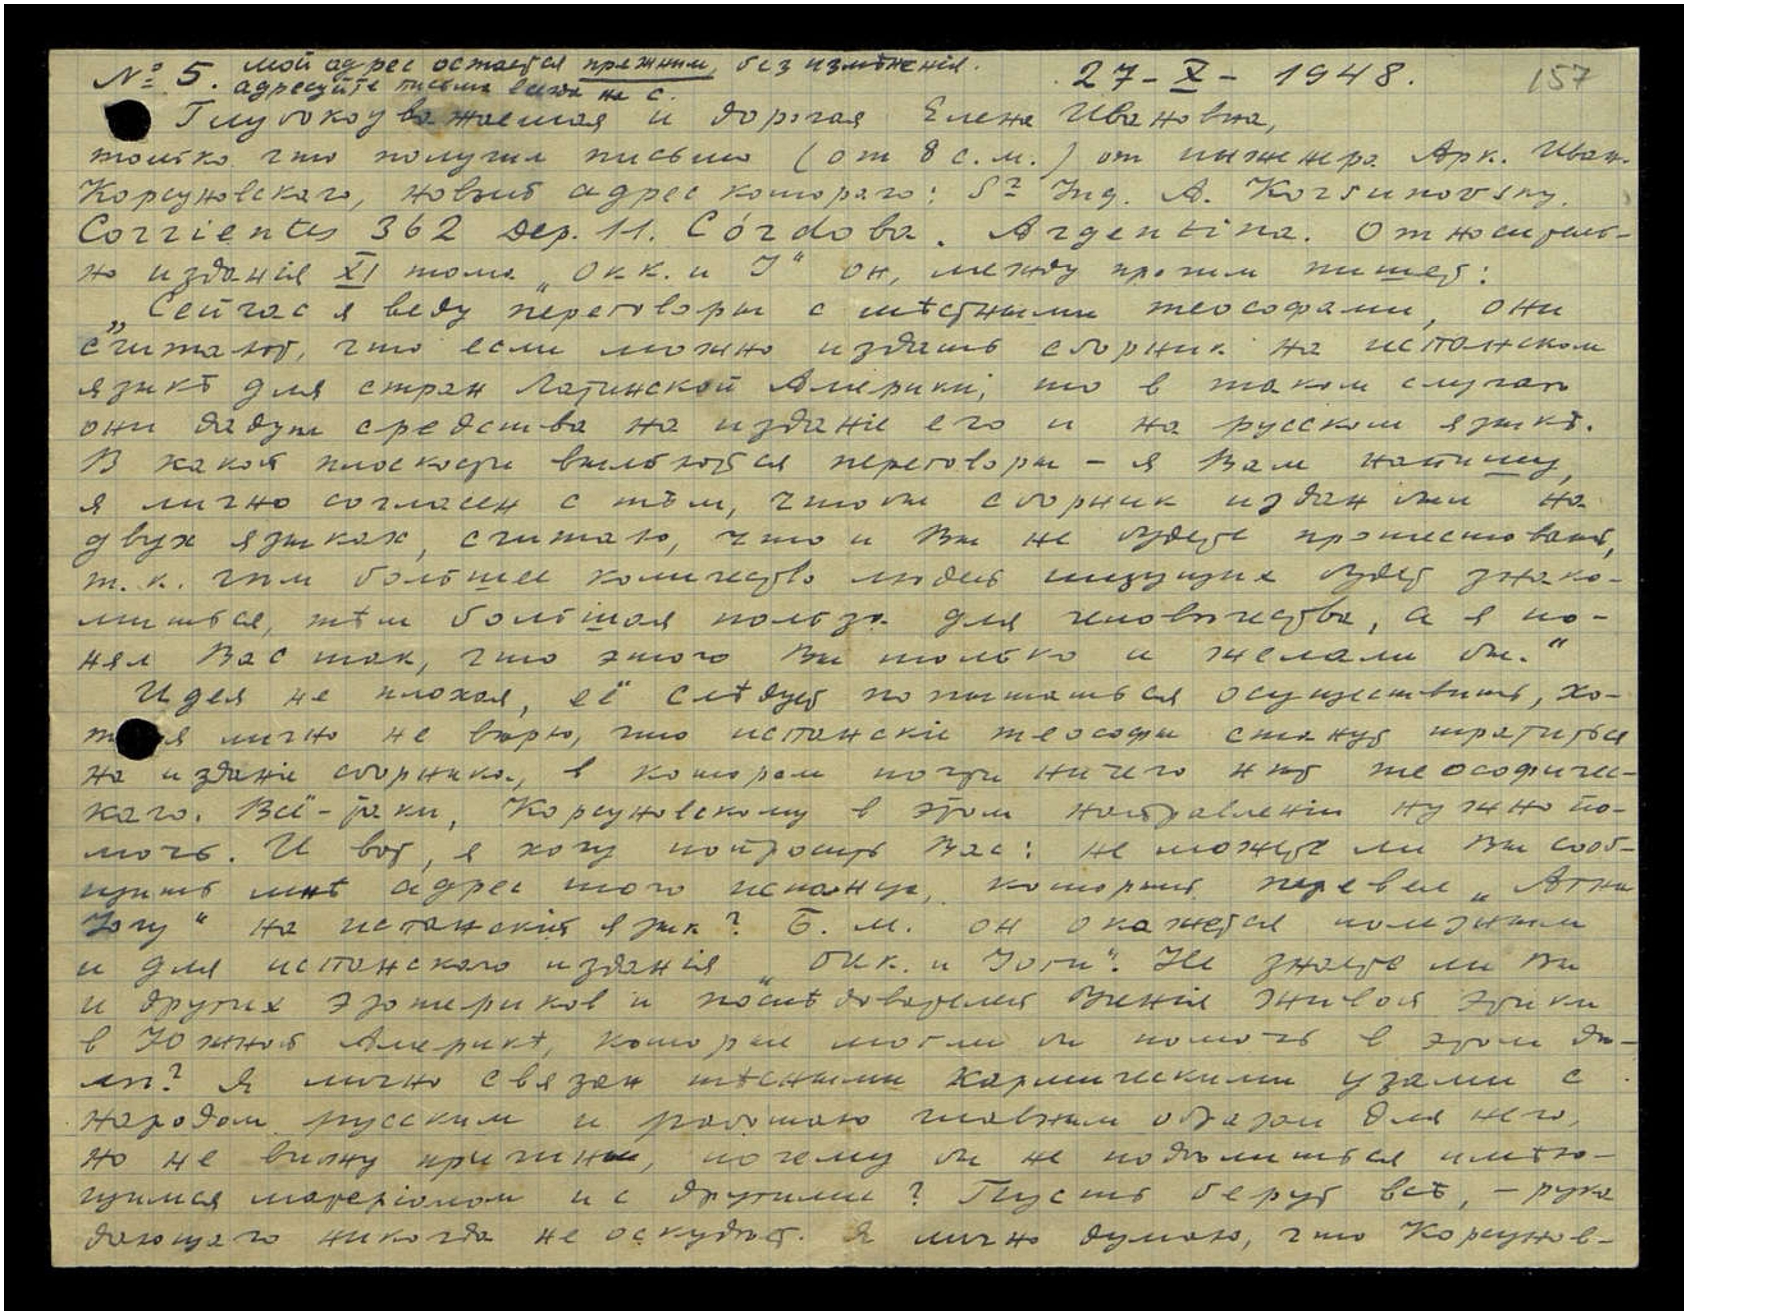 № 5. мой адрес остается прежним, без измѣненія. 27-X-1948. 157
адресуйте письма на с.
Глубокоуважаемая и дорогая Елена Ивановна,
только что получил письмо (от 8 с.м.) от инженера Арк. Иван.
Корсуновскаго, новый адрес котораго: Sr Ing. A. Korsunovsky.
Corrientes 362 Dep. 11. Córdoba. Argentina. Относитель-
но изданія XI тома „Окк. и I“ он, между прочим пишет:
„Сейчас я веду переговоры с мѣстными теософами, они
считают, что если можно издать сборник на испанском
языкѣ для стран Латинской Америки, то в таком случаѣ
они дадут средства на изданіе его и на русском языкѣ.
В какой плоскости выльются переговоры - я Вам напишу,
я лично согласен с тѣм, чтобы сборник издан был на
двух языках, считаю, что и Вы не будете протестовать,
т.к. чѣм большее количество людей ищущих будет знако-
миться, тѣм большая польза для человѣчества, а я по-
нял Вас так, что этого Вы только и желали бы.“
Идея не плохая, её слѣдует попытаться осуществить, хо-
тя я лично не вѣрю, что испанскіе теософы станут тратиться
на изданіе сборника, в котором почти ничего нѣт теософичес-
каго. Всё-таки, Корсуновскому в этом направленіи нужно по-
мочь. И вот, я хочу попросить Вас: не можете ли Вы сооб-
щить мнѣ адрес того испанца, который перевел „Агни
Іогу“ на испанскій язык? Б.м. он окажется полезным
и для испанскаго изданія „Окк. и Іоги“. Не знаете ли Вы
и других эзотериков и послѣдователей Ученія Живой Этики
в Южной Америкѣ, которые могли бы помочь в этом дѣ-
лѣ? Я лично связан тѣсными кармическими узами с
народом русским и работаю главным образом для него,
но не вижу причины, почему бы не подѣлиться имѣю-
щимся матеріалом и с другими? Пусть берут всѣ, - рука
дающаго никогда не оскудѣет. Я лично думаю, что Корсунов-